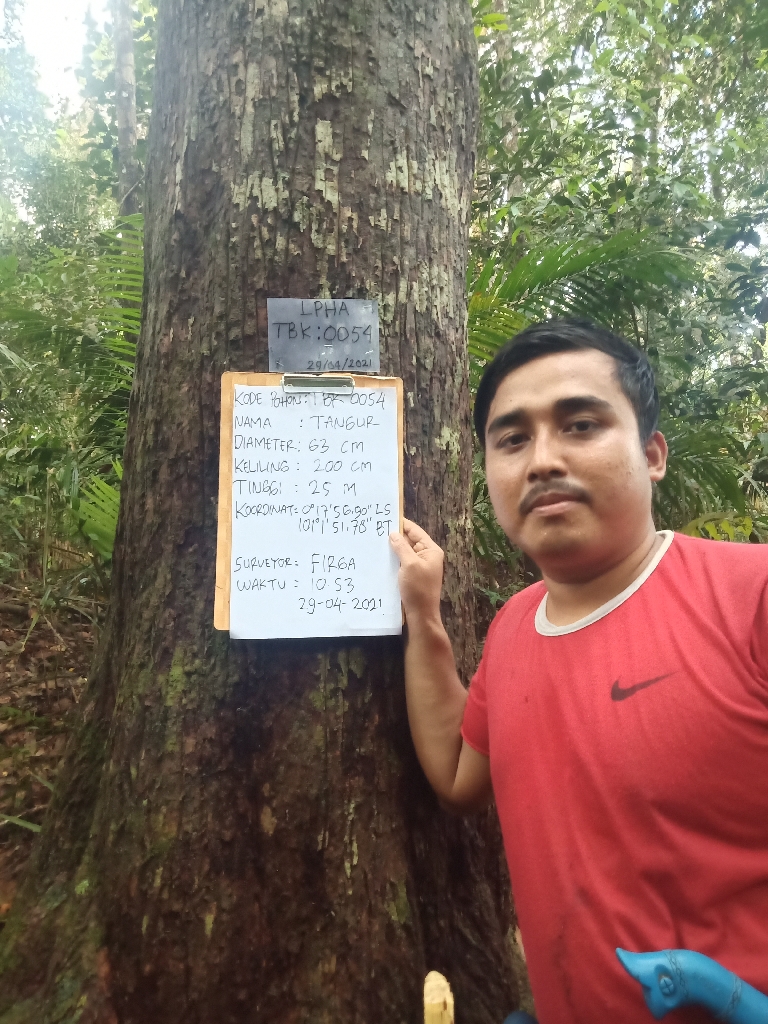 LPHA
TBK:0054
29/04/2021
KODE POHON: TBK 0054
NAMA : TANGUR
DIAMETER: 63 CM
KELILING : 200 CM
TINGGI : 25 M
KOORDINAT: 0°17'56.90" LS
101°1'51.78" BT
SURVEYOR: FIRGA
WAKTU : 10.53
29-04-2021